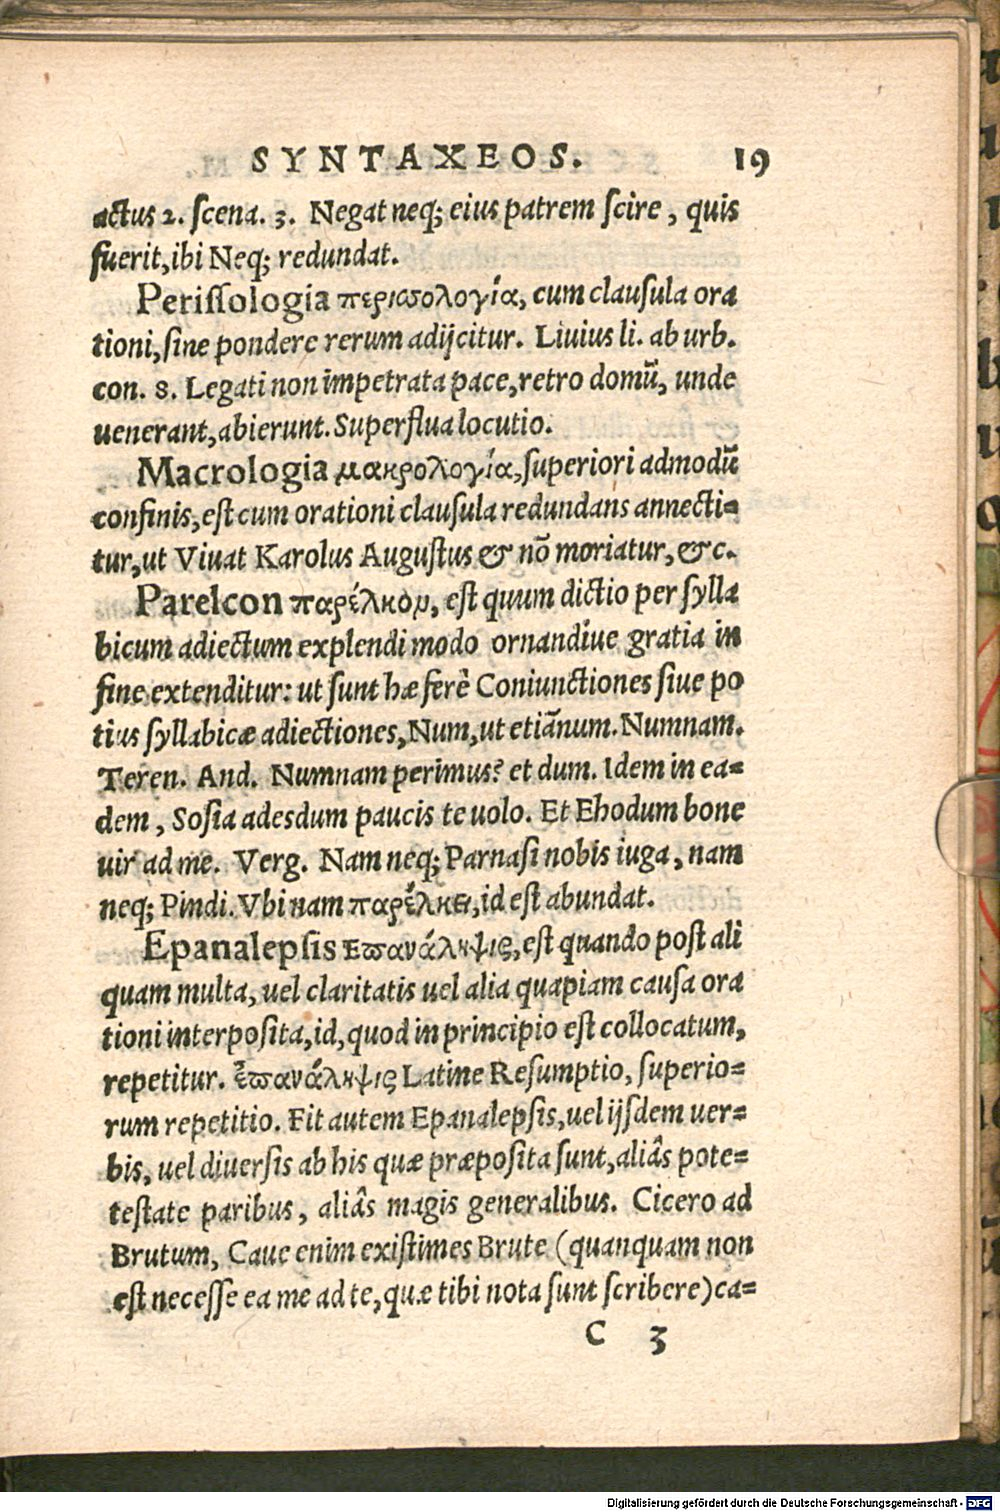 SYNTAXEOS. 19
actus 2. scena. 3. Negat neq; eius patrem scire, quis
fuerit, ibi Neq; redundat.
Perissologia περισσολογία, cum clausula ora
tioni, sine pondere rerum adijcitur. Liuius li. ab urb.
con. 8. Legati non impetrata pace, retro domū, unde
uenerant, abierunt. Superflua locutio.
Macrologia μακρολογία, superiori admodū
confinis, est cum orationi clausula redundans annecti=
tur, ut Viuat Karolus Augustus & nō moriatur, &c.
Parelcon παρέλκον, est quum dictio per sylla
bicum adiectum explendi modo ornandiue gratia in
fine extenditur: ut sunt hæ ferè Coniunctiones siue po
tius syllabicæ adiectiones, Num, ut etiānum. Numnam.
Teren. And. Numnam perimus? et dum. Idem in ea=
dem, Sosia adesdum paucis te uolo. Et Ehodum bone
uir ad me. Verg. Nam neq; Parnasi nobis iuga, nam
neq; Pindi. Vbi nam παρέλκει, id est abundat.
Epanalepsis Επανάληψις, est quando post ali
quam multa, uel claritatis uel alia quapiam causa ora
tioni interposita, id, quod in principio est collocatum,
repetitur. ἐπανάληψις Latine Resumptio, superio=
rum repetitio. Fit autem Epanalepsis, uel ijsdem uer=
bis, uel diuersis ab his quæ præposita sunt, aliâs pote=
testate paribus, aliâs magis generalibus. Cicero ad
Brutum, Caue enim existimes Brute (quanquam non
est necesse ea me ad te, quæ tibi nota sunt scribere) ca=
C 3
Digitalisierung gefördert durch die Deutsche Forschungsgemeinschaft - DFG